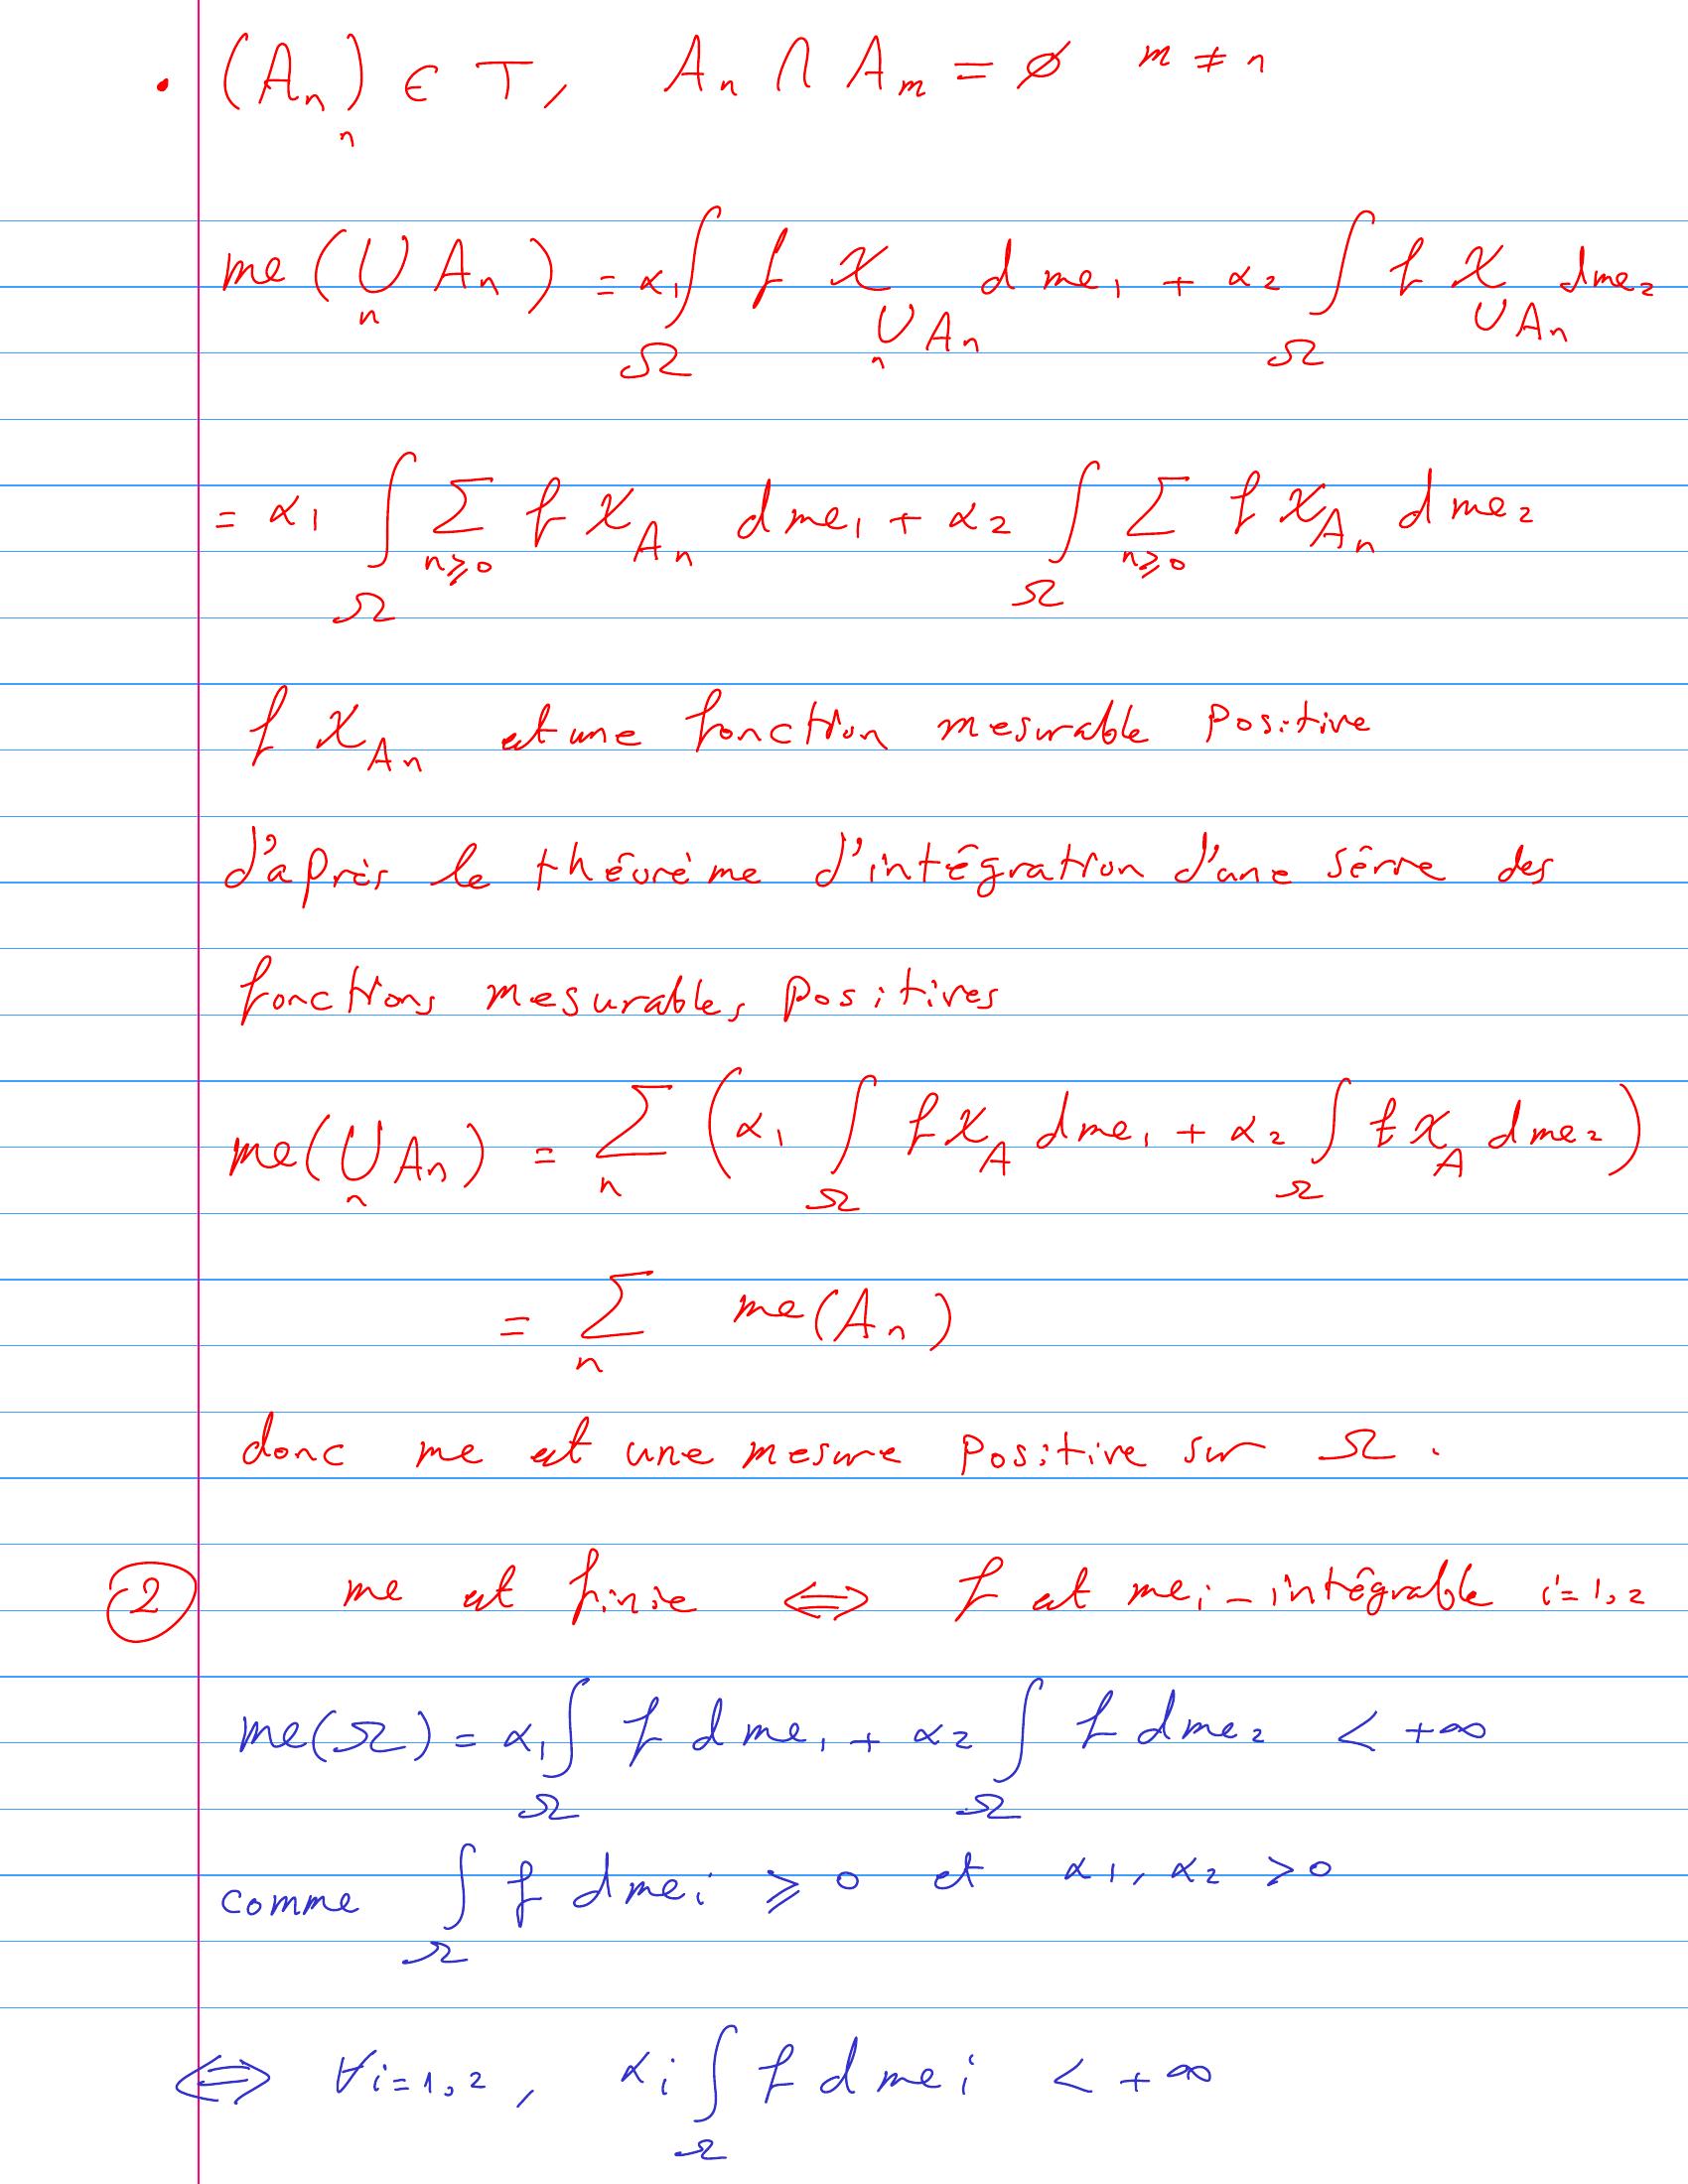 • (Aₙ)ₙ ∈ T, Aₙ ∩ Aₘ = ∅ m ≠ n
me(⋃ₙ Aₙ) = α₁ ∫_Ω f χ_{⋃ₙ Aₙ} d me₁ + α₂ ∫_Ω f χ_{∪Aₙ} dme₂
= α₁ ∫_Ω Σ_{n≥0} f χ_{Aₙ} dme₁ + α₂ ∫_Ω Σ_{n≥0} f χ_{Aₙ} dme₂
f χ_{Aₙ} est une fonction mesurable positive
d'après le théorème d'intégration d'une série des
fonctions mesurables positives
me(⋃ₙ Aₙ) = Σₙ (α₁ ∫_Ω f χ_A dme₁ + α₂ ∫_Ω f χ_A dme₂)
= Σₙ me(Aₙ)
donc me est une mesure positive sur Ω.
② me est finie ⟺ f est meᵢ-intégrable i=1,2
me(Ω) = α₁ ∫_Ω f dme₁ + α₂ ∫_Ω f dme₂ < +∞
comme ∫_Ω f dmeᵢ ≥ 0 et α₁, α₂ > 0
⟺ ∀i=1,2, αᵢ ∫_Ω f dmeᵢ < +∞